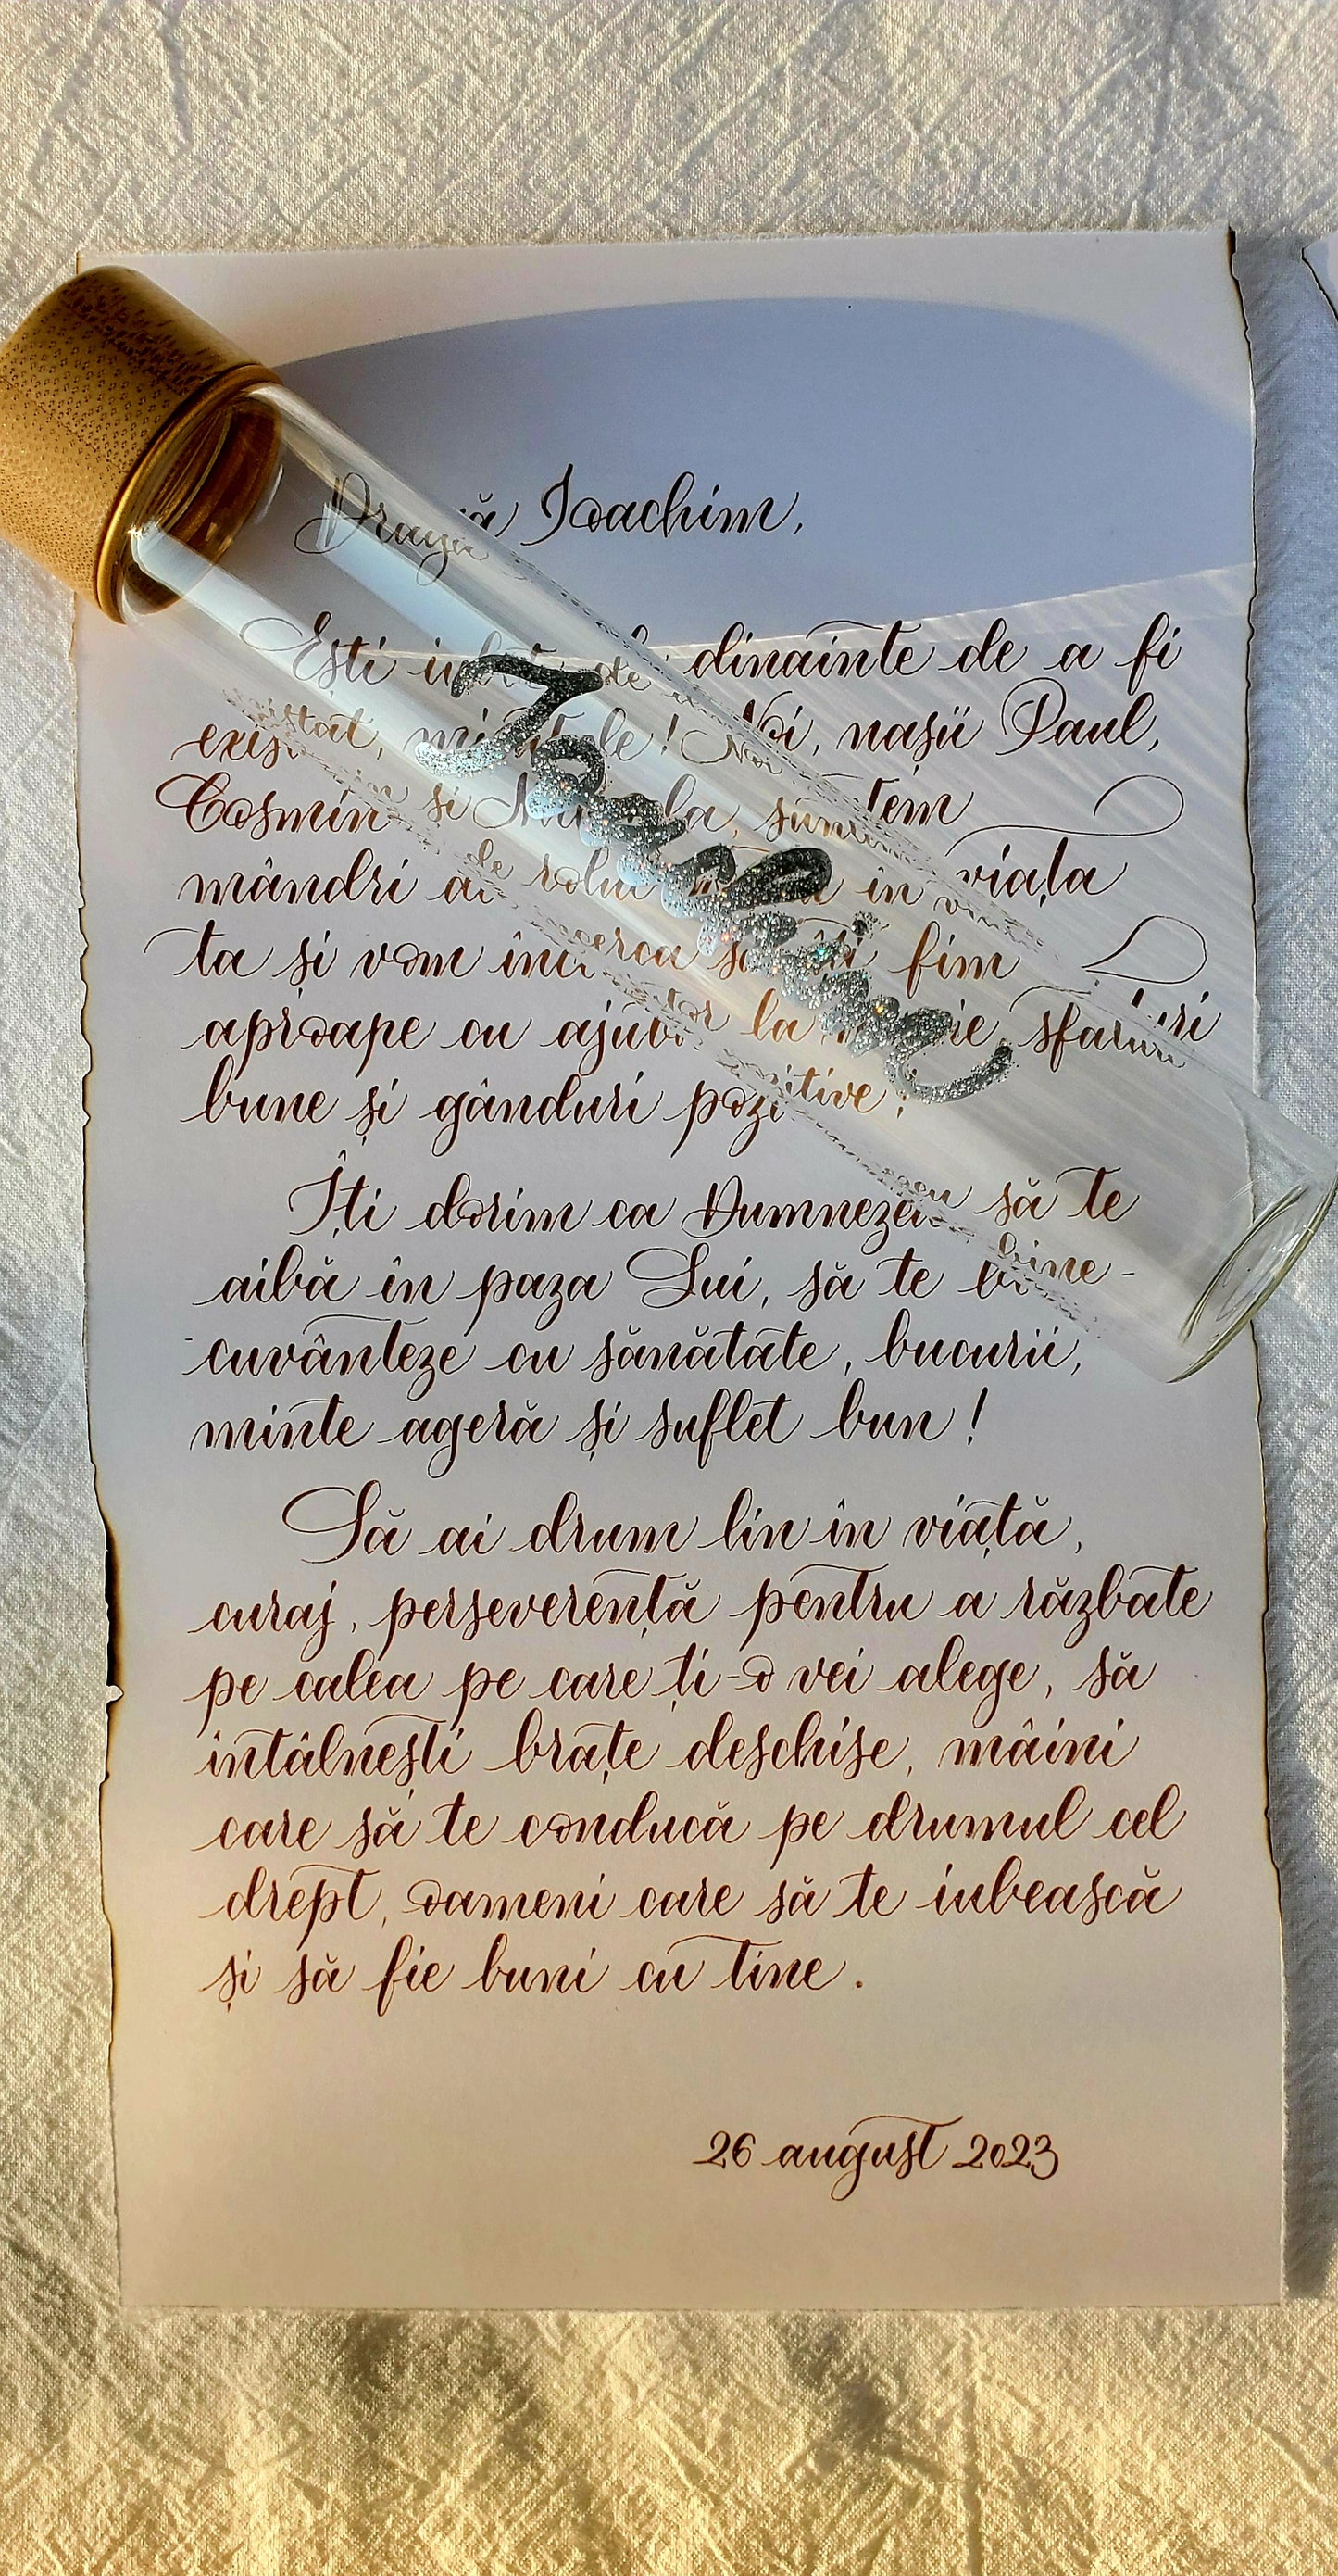 Dragă Ioachim,
Ești iubit de dinainte de a fi
existat, micuțule! Noi, nașii Paul,
Cosmin și suntem
mândri de rolul în viața
ta și vom încerca să îți fim
aproape cu ajutor la nevoie, sfaturi
bune și gânduri pozitive!
Îți dorim ca Dumnezeu să te
aibă în paza Lui, să te bine-
cuvânteze cu sănătate, bucurii,
minte ageră și suflet bun!
Să ai drum lin în viață,
curaj, perseverență pentru a răzbate
pe calea pe care ți-o vei alege, să
întâlnești brațe deschise, mâini
care să te conducă pe drumul cel
drept, oameni care să te iubească
și să fie buni cu tine.
26 august 2023
Ioachim